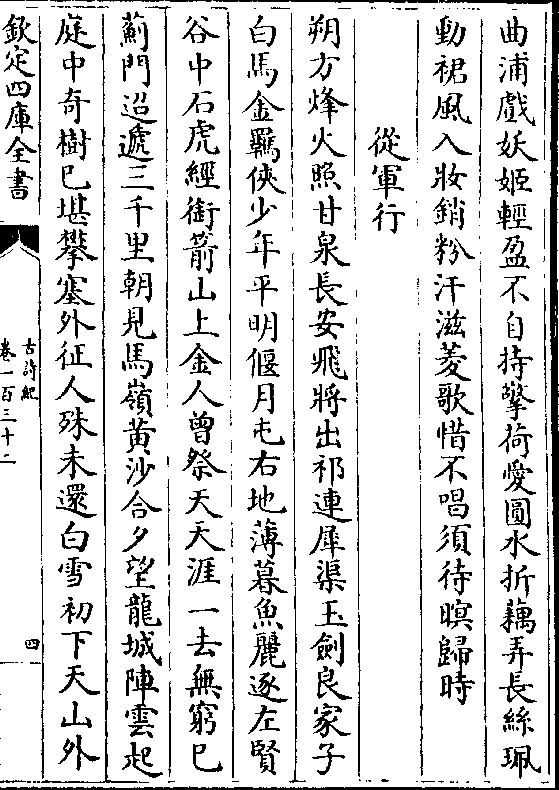 曲浦戲妖姬輕盈不自持擎荷愛圓水折藕弄長絲珮
動裙風入妝銷粉汗滋菱歌惜不唱須待暝歸時
從軍行
朔方烽火照甘泉長安飛將出祁連犀渠玉劍良家子
白馬金羈俠少年平明偃月屯右地薄暮魚麗逐左賢
谷中石虎經銜箭山上金人曾祭天天涯一去無窮已
薊門迢遞三千里朝見馬嶺黄沙合夕望龍城陣雲起
庭中奇樹已堪攀塞外征人殊未還白雪初下天山外
欽定四庫全書
古詩紀
卷一百三十二
四